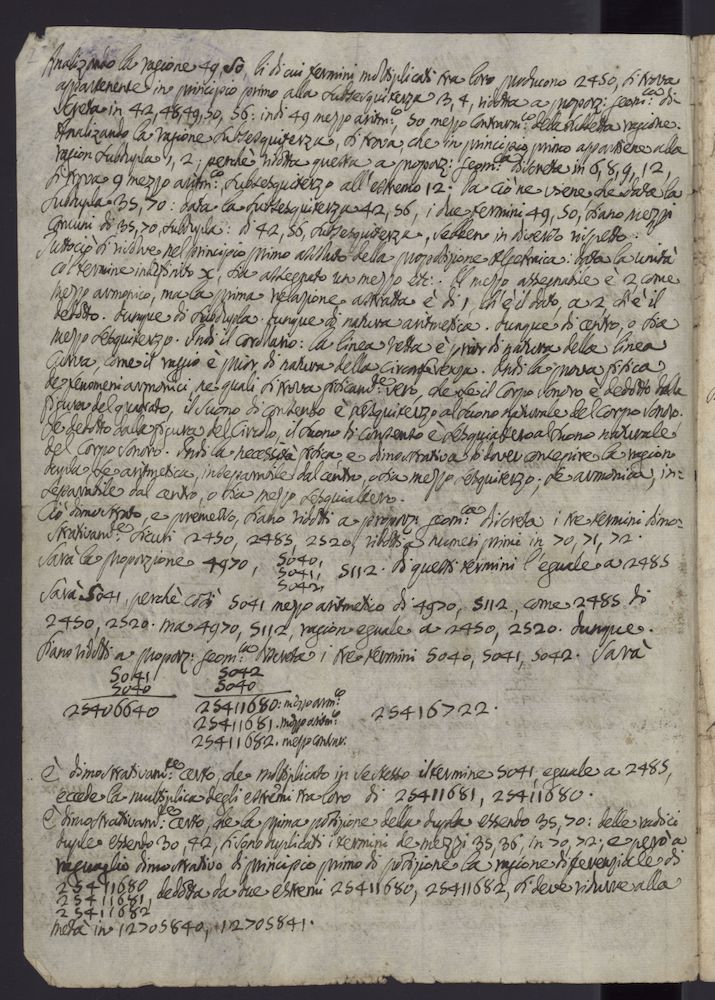 Analizando la ragione 49, 50, li di cui termini moltiplicati tra loro producono 2450, si trova
appartenente in principio primo alla subsesquiterza 3, 4, ridotta a proporz: geom:ca di-
screta in 42, 48, 49, 50, 56: indi 49 mezzo aritm:co, 50 mezzo contrarm:co della suddetta ragione.
Analizando la ragione subsesquiterza, si trova, che in principio primo appartiene alla
ragion subdupla 1, 2; perchè ridotta questa a proporz: geom:ca discreta in 6, 8, 9, 12,
si trova 9 mezzo aritm:co, subsesquiterzo all'estremo 12. Da ciò ne viene che data la
subdupla 35, 70: data la subsesquiterza 42, 56, i due termini 49, 50, siano mezzi
comuni di 35, 70, subdupla: di 42, 56, subsesquiterza, sebben in diverso rispetto.
Tuttociò si risolve nel principio primo assoluto della proposizione algebraica: data la unità
col termine indefinito x, sia assegnato un mezzo etc:. Il mezzo assegnabile è 2 come
mezzo armonico, ma la prima relazione astratta è di 1, ch'è il dato, a 2 ch'è il
dedotto. Dunque di subdupla: dunque di natura aritmetica. Dunque di centro, o sia
mezzo sesquiterzo. Indi il corollario: la linea retta è prior di natura della linea
curva, come il raggio è prior di natura della circonferenza. Indi la prova fisica
de fenomeni armonici, ne quali si trova fisicam:te vero, che se il corpo sonoro è dedotto dalla
figura del quadrato, il suono di contento è sesquiterzo al suono naturale del corpo sonoro.
Se dedotto dalla figura del circolo, il suono di contento è sesquialtero al suono naturale
del corpo sonoro. Indi la necessità fisica, e dimostrativa di dover concepire la ragion
dupla se aritmetica, inseparabile dal centro, o sia mezzo sesquiterzo; se armonica, in-
separabile dal centro, o sia mezzo sesquialtero.
Ciò dimostrato, e premesso, siano ridotti a proporz: geom:ca discreta i tre termini dimo-
strativam:te sicuri 2450, 2485, 2520, ridotti a numeri primi in 70, 71, 72.
Sarà la proporzione 4970, 5040, 5041, 5042, 5112. Di questi termini l'eguale a 2485
Sarà 5041, perchè così 5041 mezzo aritmetico di 4970, 5112, come 2485 di
2450, 2520. Ma 4970, 5112, ragion eguale a 2450, 2520. Dunque.
Siano ridotti a proporz: geom:ca discreta i tre termini 5040, 5041, 5042. Sarà
5041 5042
5040 5040
25406640 25411680: mezzo arm:co
25411681. mezzo aritm:co 25416722.
25411682. mezzo contrar:
È dimostrativam:te certo, che moltiplicato in se stesso il termine 5041, eguale a 2485,
eccede la multiplica degli estremi tra loro di 25411681, 25411680.
È dimostrativam:te certo, che la prima posizione della dupla essendo 35, 70: delle radici
duple essendo 30, 42, si sono duplicati i termini de mezzi 35, 36, in 70, 72; e però a
ragguaglio dimostrativo di principio primo di posizione la ragione differenziale di
25411680
25411681, dedotta da due estremi 25411680, 25411682, si deve ridurre alla
25411682
metà in 12705840, 12705841.